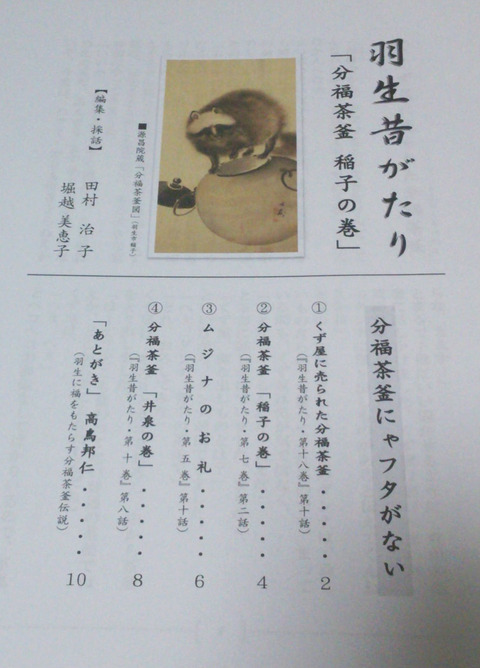 羽生昔がたり
「分福茶釜 稲子の巻」
■源昌院蔵「分福茶釜図」(羽生市稲子)
【編集・採話】
田村 治子
堀越 美恵子
分福茶釜にゃフタがない
① くず屋に売られた分福茶釜・・・・・・2
(『羽生昔がたり・第十八巻』第十話)
② 分福茶釜 「稲子の巻」・・・・・・4
(『羽生昔がたり・第七巻』第二話)
③ ムジナのお礼・・・・・・6
(『羽生昔がたり・第五巻』第十話)
④ 分福茶釜 「井泉の巻」・・・・・・8
(『羽生昔がたり・第十巻』第八話)
「あとがき」 高鳥邦仁・・・・・・10
(羽生に福をもたらす分福茶釜伝説)